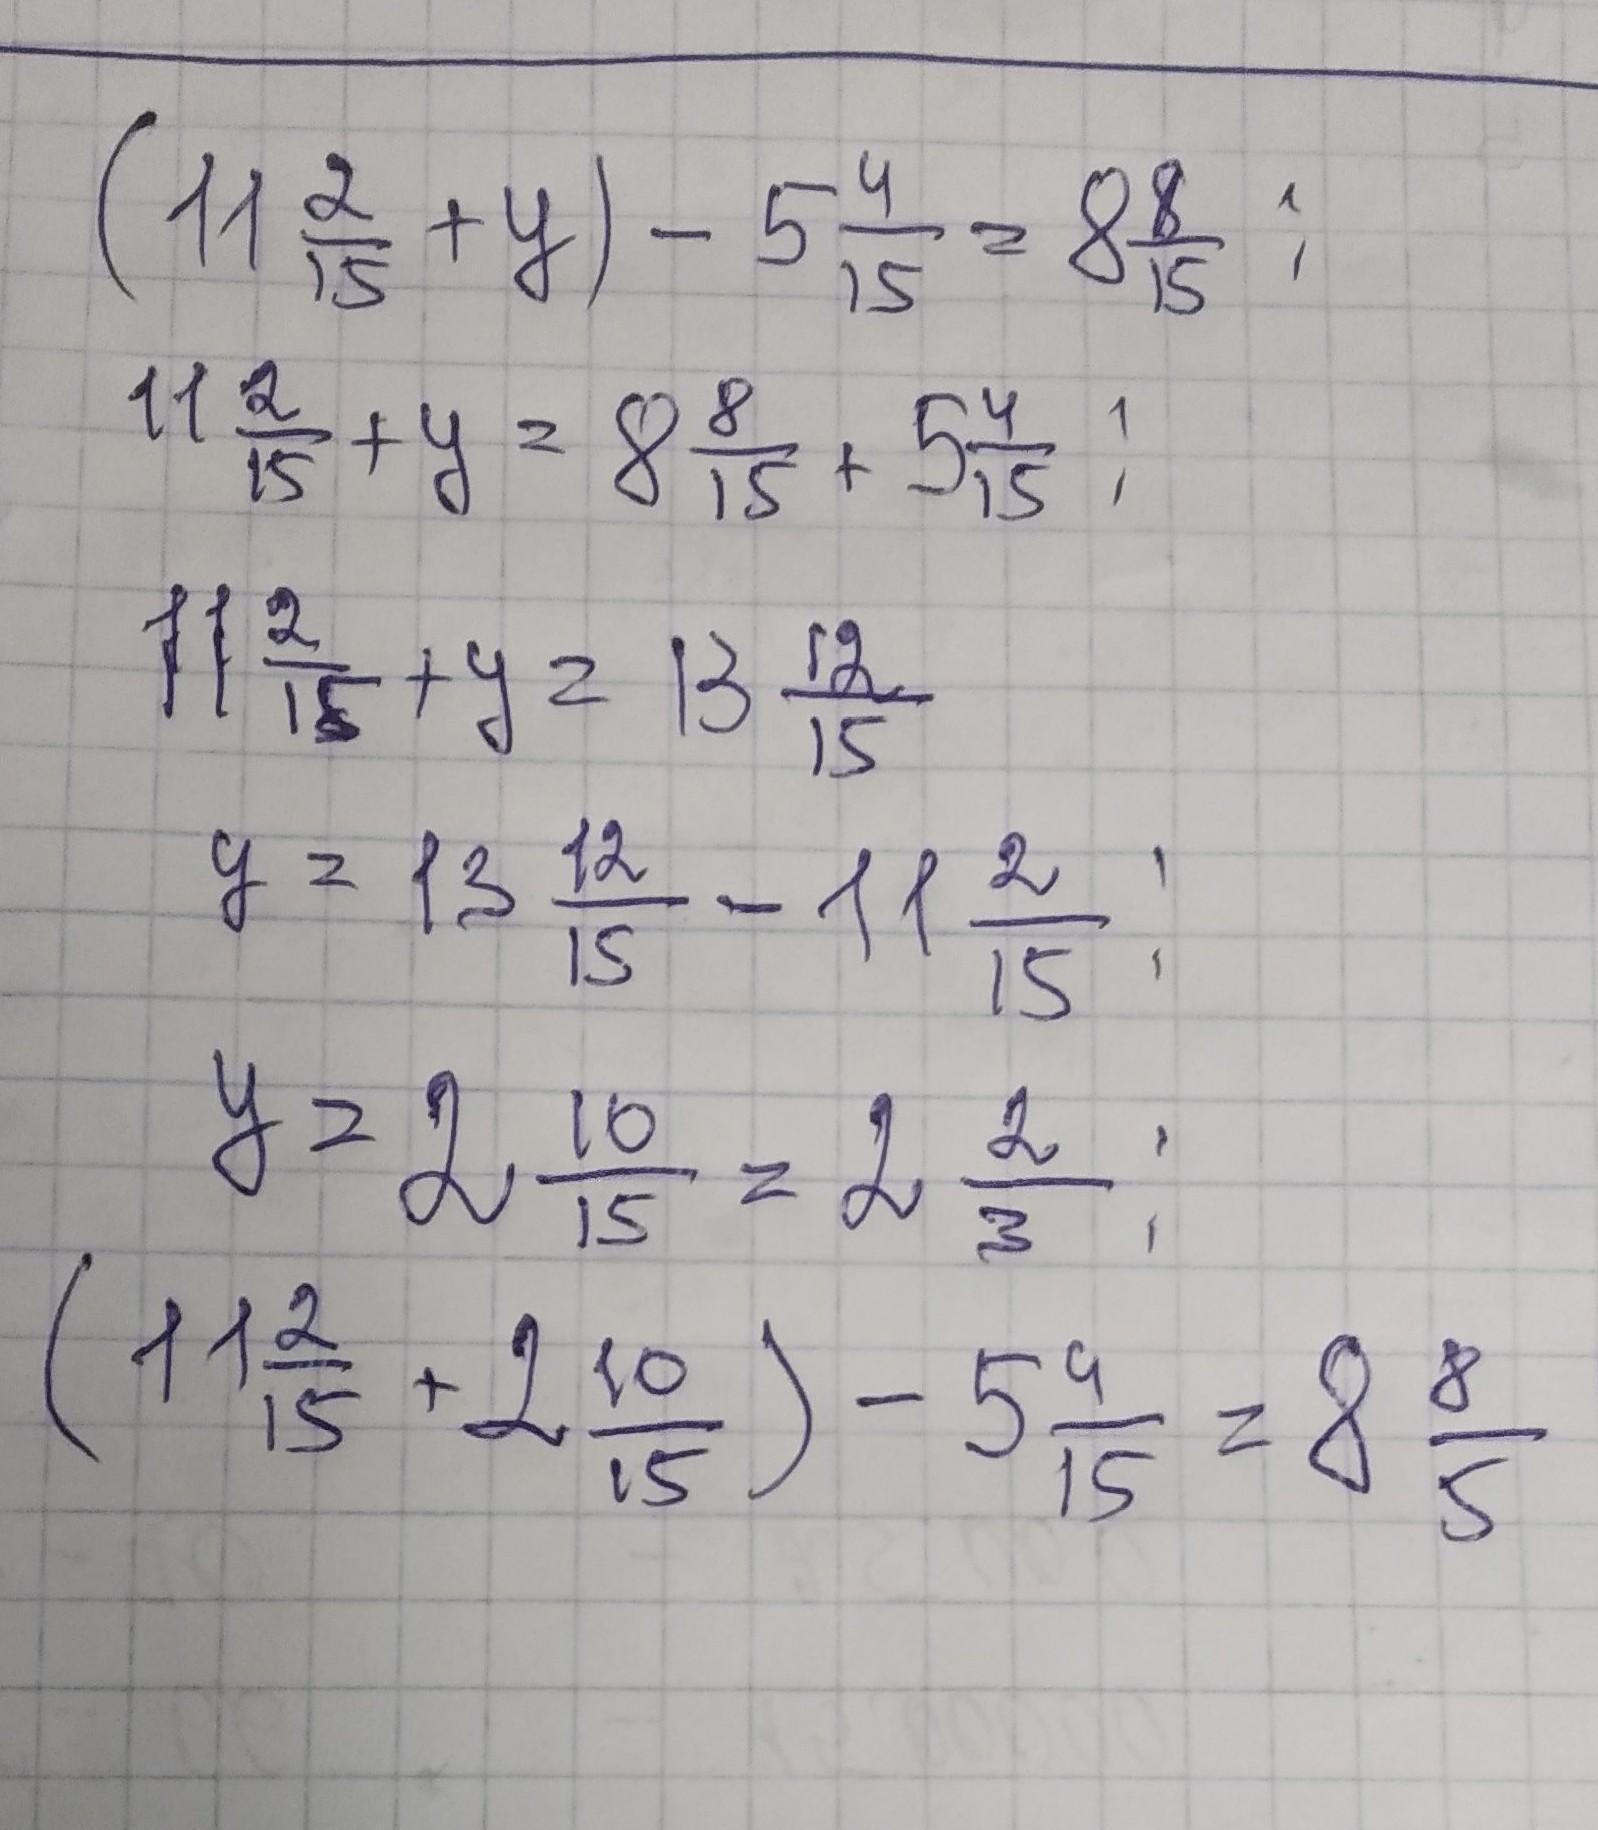 (11 2/15 + y) - 5 4/15 = 8 8/15 ;
11 2/15 + y = 8 8/15 + 5 4/15 ;
11 2/15 + y = 13 12/15
y = 13 12/15 - 11 2/15 ;
y = 2 10/15 = 2 2/3 ;
(11 2/15 + 2 10/15) - 5 4/15 = 8 8/5